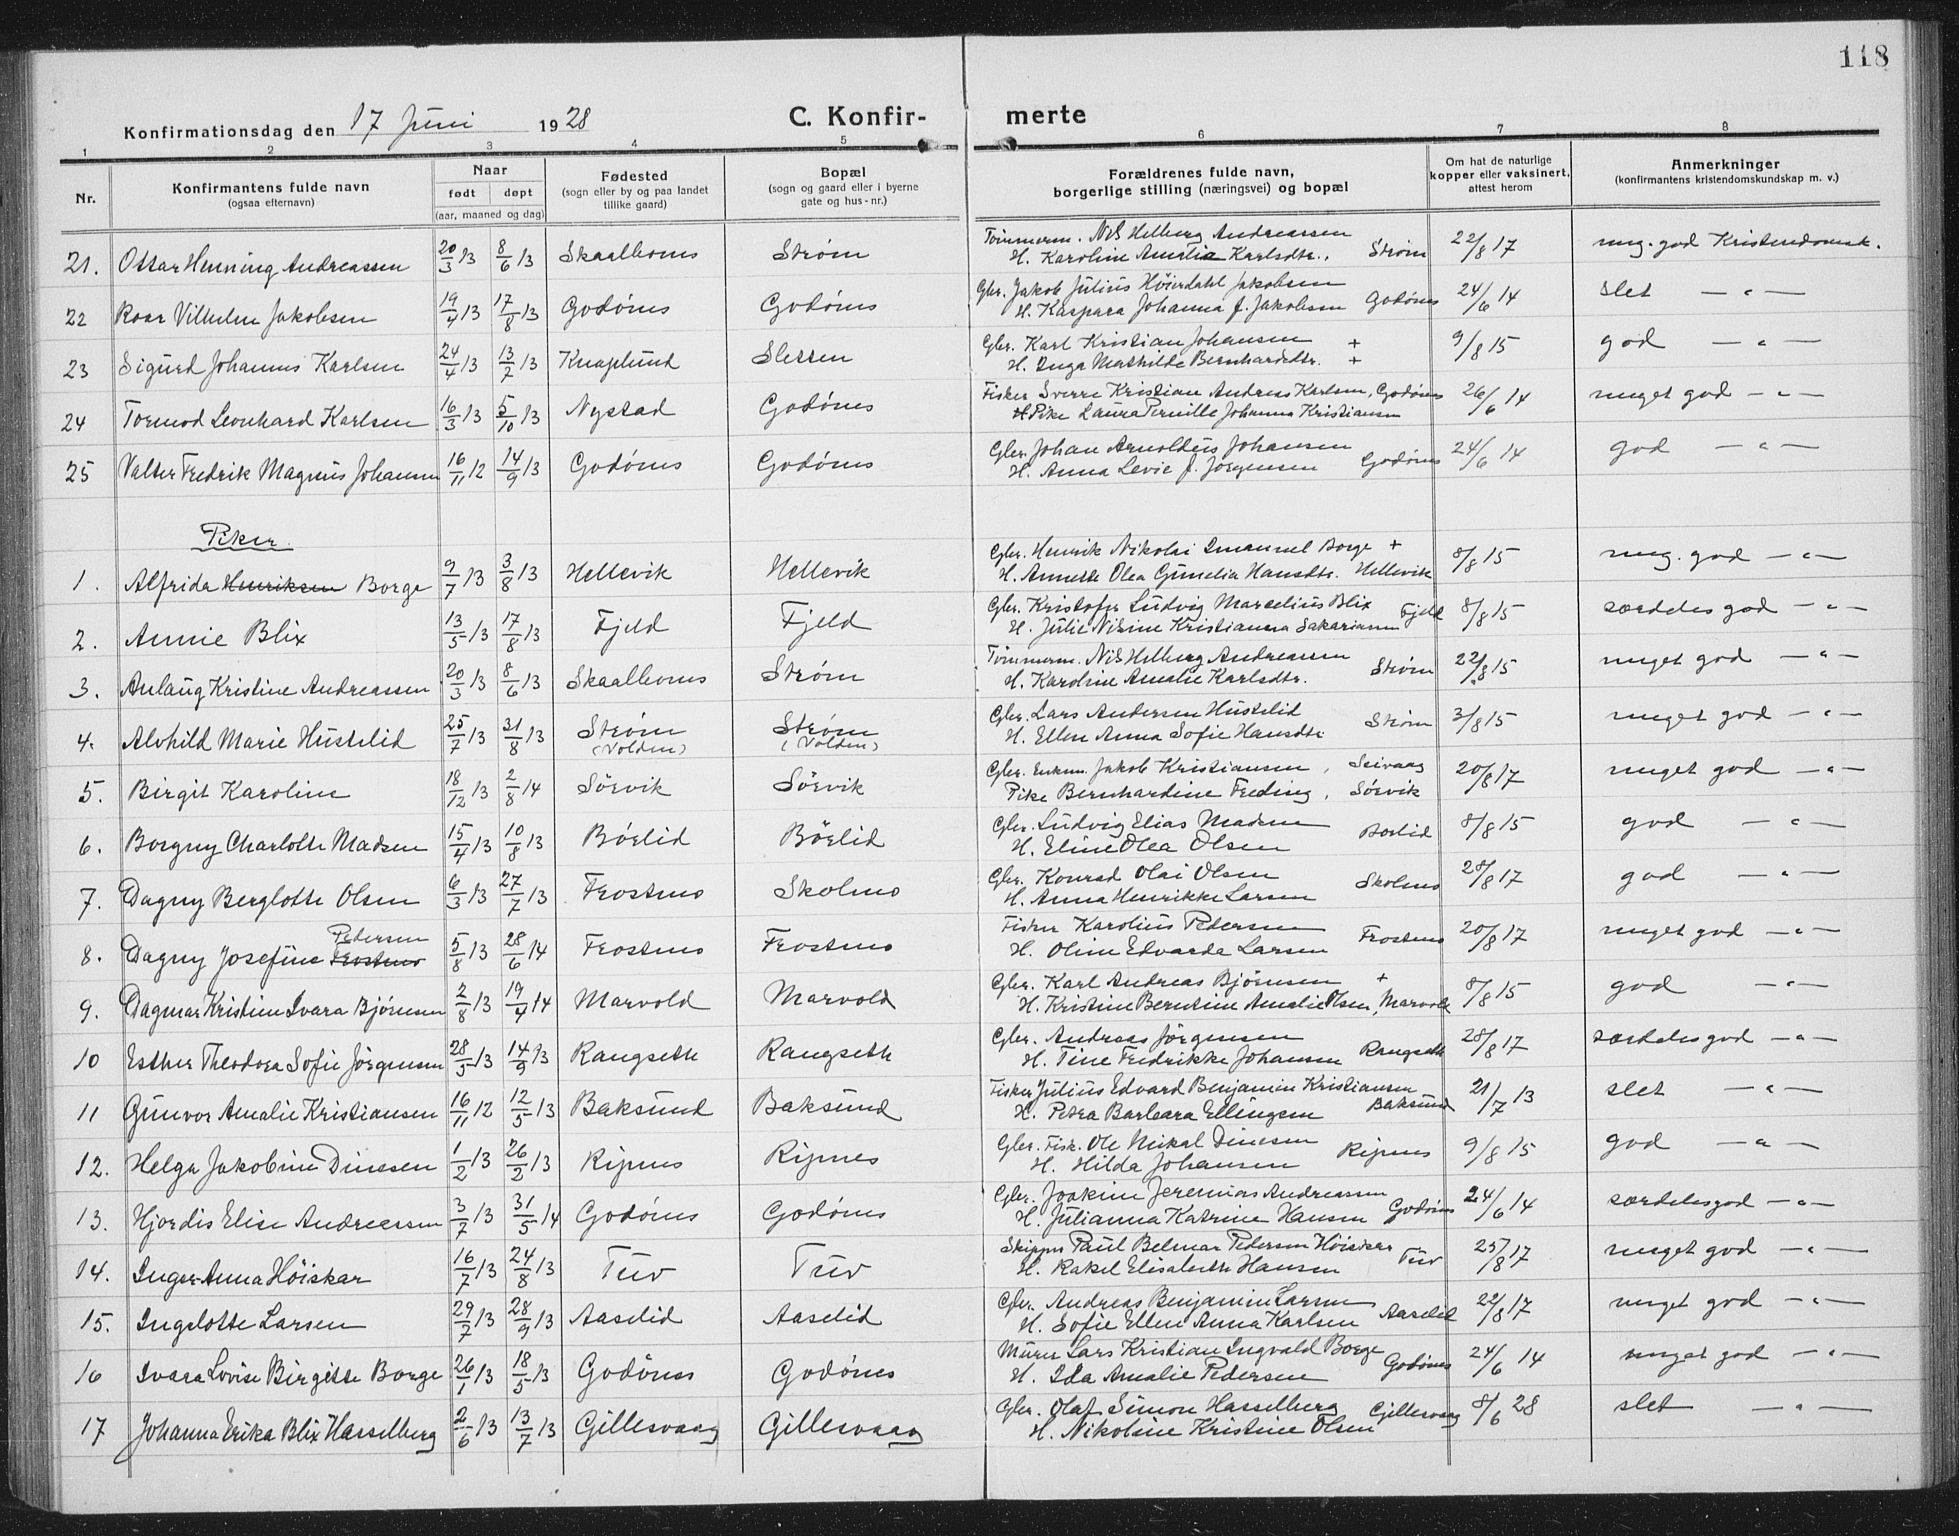 118
Konfirmationsdag den 17 Juni 1928 C. Konfir- merte
1 2 3 4 5 6 7 8
Nr. Konfirmantens fulde navn (ogsaa efternavn) Naar født døpt (aar, maaned og dag) Fødested (sogn eller by og paa landet tillike gaard) Bopæl (sogn og gaard eller i byerne gate og hus-nr.) Forældrenes fulde navn, borgerlige stilling (næringsvei) og bopæl Om hat de naturlige kopper eller vaksinert, attest herom Anmerkninger (konfirmantens kristendomskundskap m. v.)
21. Ottar Henning Andreassen 20/3 13 8/6 13 Skaalhovns Strøm Tømmerm. Nils Helberg Andreassen H. Karoline Amalie Karlsdtr., Strøm 22/8 17 meg. god Kristendomsk.
22 Roar Vilhelm Jakobsen 19/4 13 17/8 13 Godønes Godønes Gbr. Jakob Julius Høierdahl Jakobsen H. Kaspara Johanna f. Jakobsen Godønes 24/6 14 slet — " —
23 Sigurd Johannes Karlsen 24/4 13 13/7 13 Knaplund Sletten Gbr. Karl Kristian Johansen + H. Inga Mathilde Bernhardsdtr. + 9/8 15 god — " —
24 Tormod Leonhard Karlsen 16/3 13 5/10 13 Nystad Godønes Fisker Sverre Kristian Andreas Karlsen, Godønes H. Pike Laura Pernille Johanna Kristiansen 26/6 14 meget god — " —
25 Valter Fredrik Magnus Johansen 16/11 12 14/9 13 Godønes Godønes Gbr. Johan Arnoldus Johansen H. Anna Levie f. Jørgensen Godønes 24/6 14 god — " —
Piker
1. Alfrida Henriksen Borge 9/7 13 3/8 13 Hellevik Hellevik Gbr. Henrik Nikolai Emanuel Borge + H. Annette Olea Gunelia Hansdtr. Hellevik 8/8 15 meg. god — " —
2. Annie Blix 13/5 13 17/8 13 Fjeld Fjeld Gbr. Kristofer Ludvig Marselius Blix H. Julie Nisine Kristianna Sakariassen Fjeld 8/8 15 særdeles god — " —
3. Aulaug Kristine Andreassen 20/3 13 8/6 13 Skaalhovns Strøm Tømmerm. Nils Helberg Andreassen H. Karoline Amalie Karlsdtr. Strøm 22/8 15 meget god — " —
4. Alvhild Marie Hustelid 25/7 13 31/8 13 Strøm (Volden) Strøm (Volden) Gbr. Lars Andersen Hustelid H. Ellen Anna Sofie Hansdtr Strøm 3/8 15 meget god — " —
5. Birgit Karoline 18/12 13 2/8 14 Sørvik Sørvik Gbr. Enkem. Jakob Kristiansen, Seivaag Pike Bernhardine Freding, Sørvik 20/8 17 meget god — " —
6. Borgny Charlotte Madsen 15/4 13 10/8 13 Børelid Børelid Gbr. Ludvig Elias Madsen H. Eline Olea Olsen 8/8 15 god — " —
7. Dagny Berglotte Olsen 6/3 13 27/7 13 Frostmo Skolmo Gbr. Konrad Olai Olsen H. Anna Henrikke Larsen Skolmo 28/8 17 god — " —
8. Dagny Josefine Frostmo Pedersen 5/8 13 28/6 14 Frostmo Frostmo Fisker Karolius Pedersen H. Oline Edvarda Larsen Frostmo 20/8 17 meget god — " —
9. Dagmar Kristine Ivara Bjørnsen 2/8 13 19/4 14 Marvold Marvold Gbr. Karl Andreas Bjørnsen + H. Kristine Berntine Amalie Olsen, Marvold 8/8 15 god — " —
10 Esther Theodora Sofie Jørgensen 28/5 13 14/9 13 Rangseth Rangseth Gbr. Andreas Jørgensen H. Tine Fredrikke Johansen Rangseth 28/8 17 særdeles god — " —
11 Gunvor Amalie Kristiansen 16/11 12 12/5 13 Baksund Baksund Fisker Julius Edvard Benjamin Kristiansen H. Petra Barbara Ellingsen Baksund 21/7 13 slet — " —
12. Helga Jakobine Dinesen 1/2 13 26/2 13 Ripnes Ripnes Gbr. Fisk. Ole Mikal Dinesen H. Hilda Johansen Ripnes 9/8 15 god — " —
13. Hjordis Elise Andreassen 3/7 13 31/5 14 Godønes Godønes Gbr. Joakim Jeremias Andreassen H. Julianna Katrine Hansen Godønes 24/6 14 særdeles god — " —
14. Inger Anna Høiskar 16/7 13 24/8 13 Tuv Tuv Skipper Paul Belmar Pedersen Høiskar H. Rakel Elisabeth Hansen Tuv 25/8 17 meget god — " —
15. Ingelotte Larsen 29/7 13 28/9 13 Aaselid Aaselid Gbr. Andreas Benjamin Larsen H. Sofie Ellen Anna Karlsen Aaselid 22/8 17 meget god — " —
16 Ivara Lovise Birgitte Borge 26/1 13 18/5 13 Godønes Godønes Murer Lars Kristian Ingvald Borge H. Ida Amalie Pedersen Godønes 24/6 14 meget god — " —
17 Johanna Erika Blix Hasselberg 2/6 13 13/7 13 Gillesvaag Gillesvaag Gbr. Olaf Simon Hasselberg H. Nikoline Kristine Olsen Gillesvaag 8/6 28 slet — " —